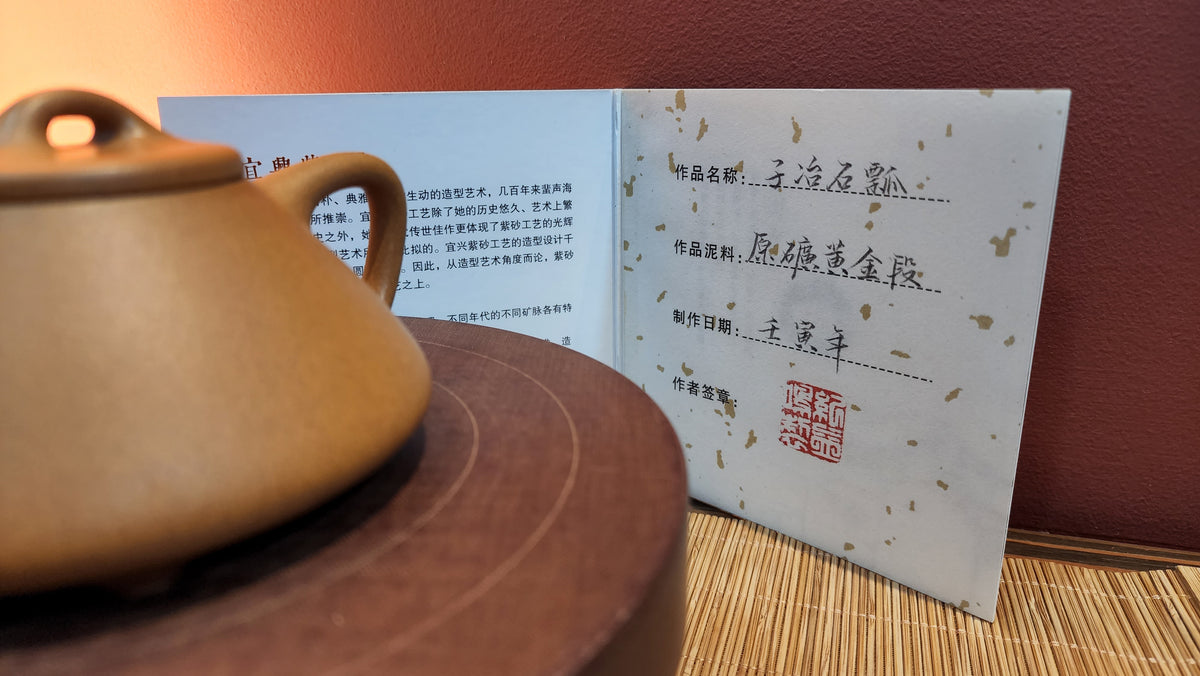 宜典
朴、典雅 生动的造型艺术，几百年来蜚声海
所推崇。宜 工艺除了她的历史悠久、艺术上繁
史之外，她 传世佳作更体现了紫砂工艺的光辉
型艺术所 比拟的。宜兴紫砂工艺的造型设计千
圆 。因此，从造型艺术角度而论，紫砂
艺之上。
不同年代的不同矿脉各有特
造
作品名称：子冶石瓢
作品泥料：原礦黄金段
制作日期：壬寅年
作者签章：